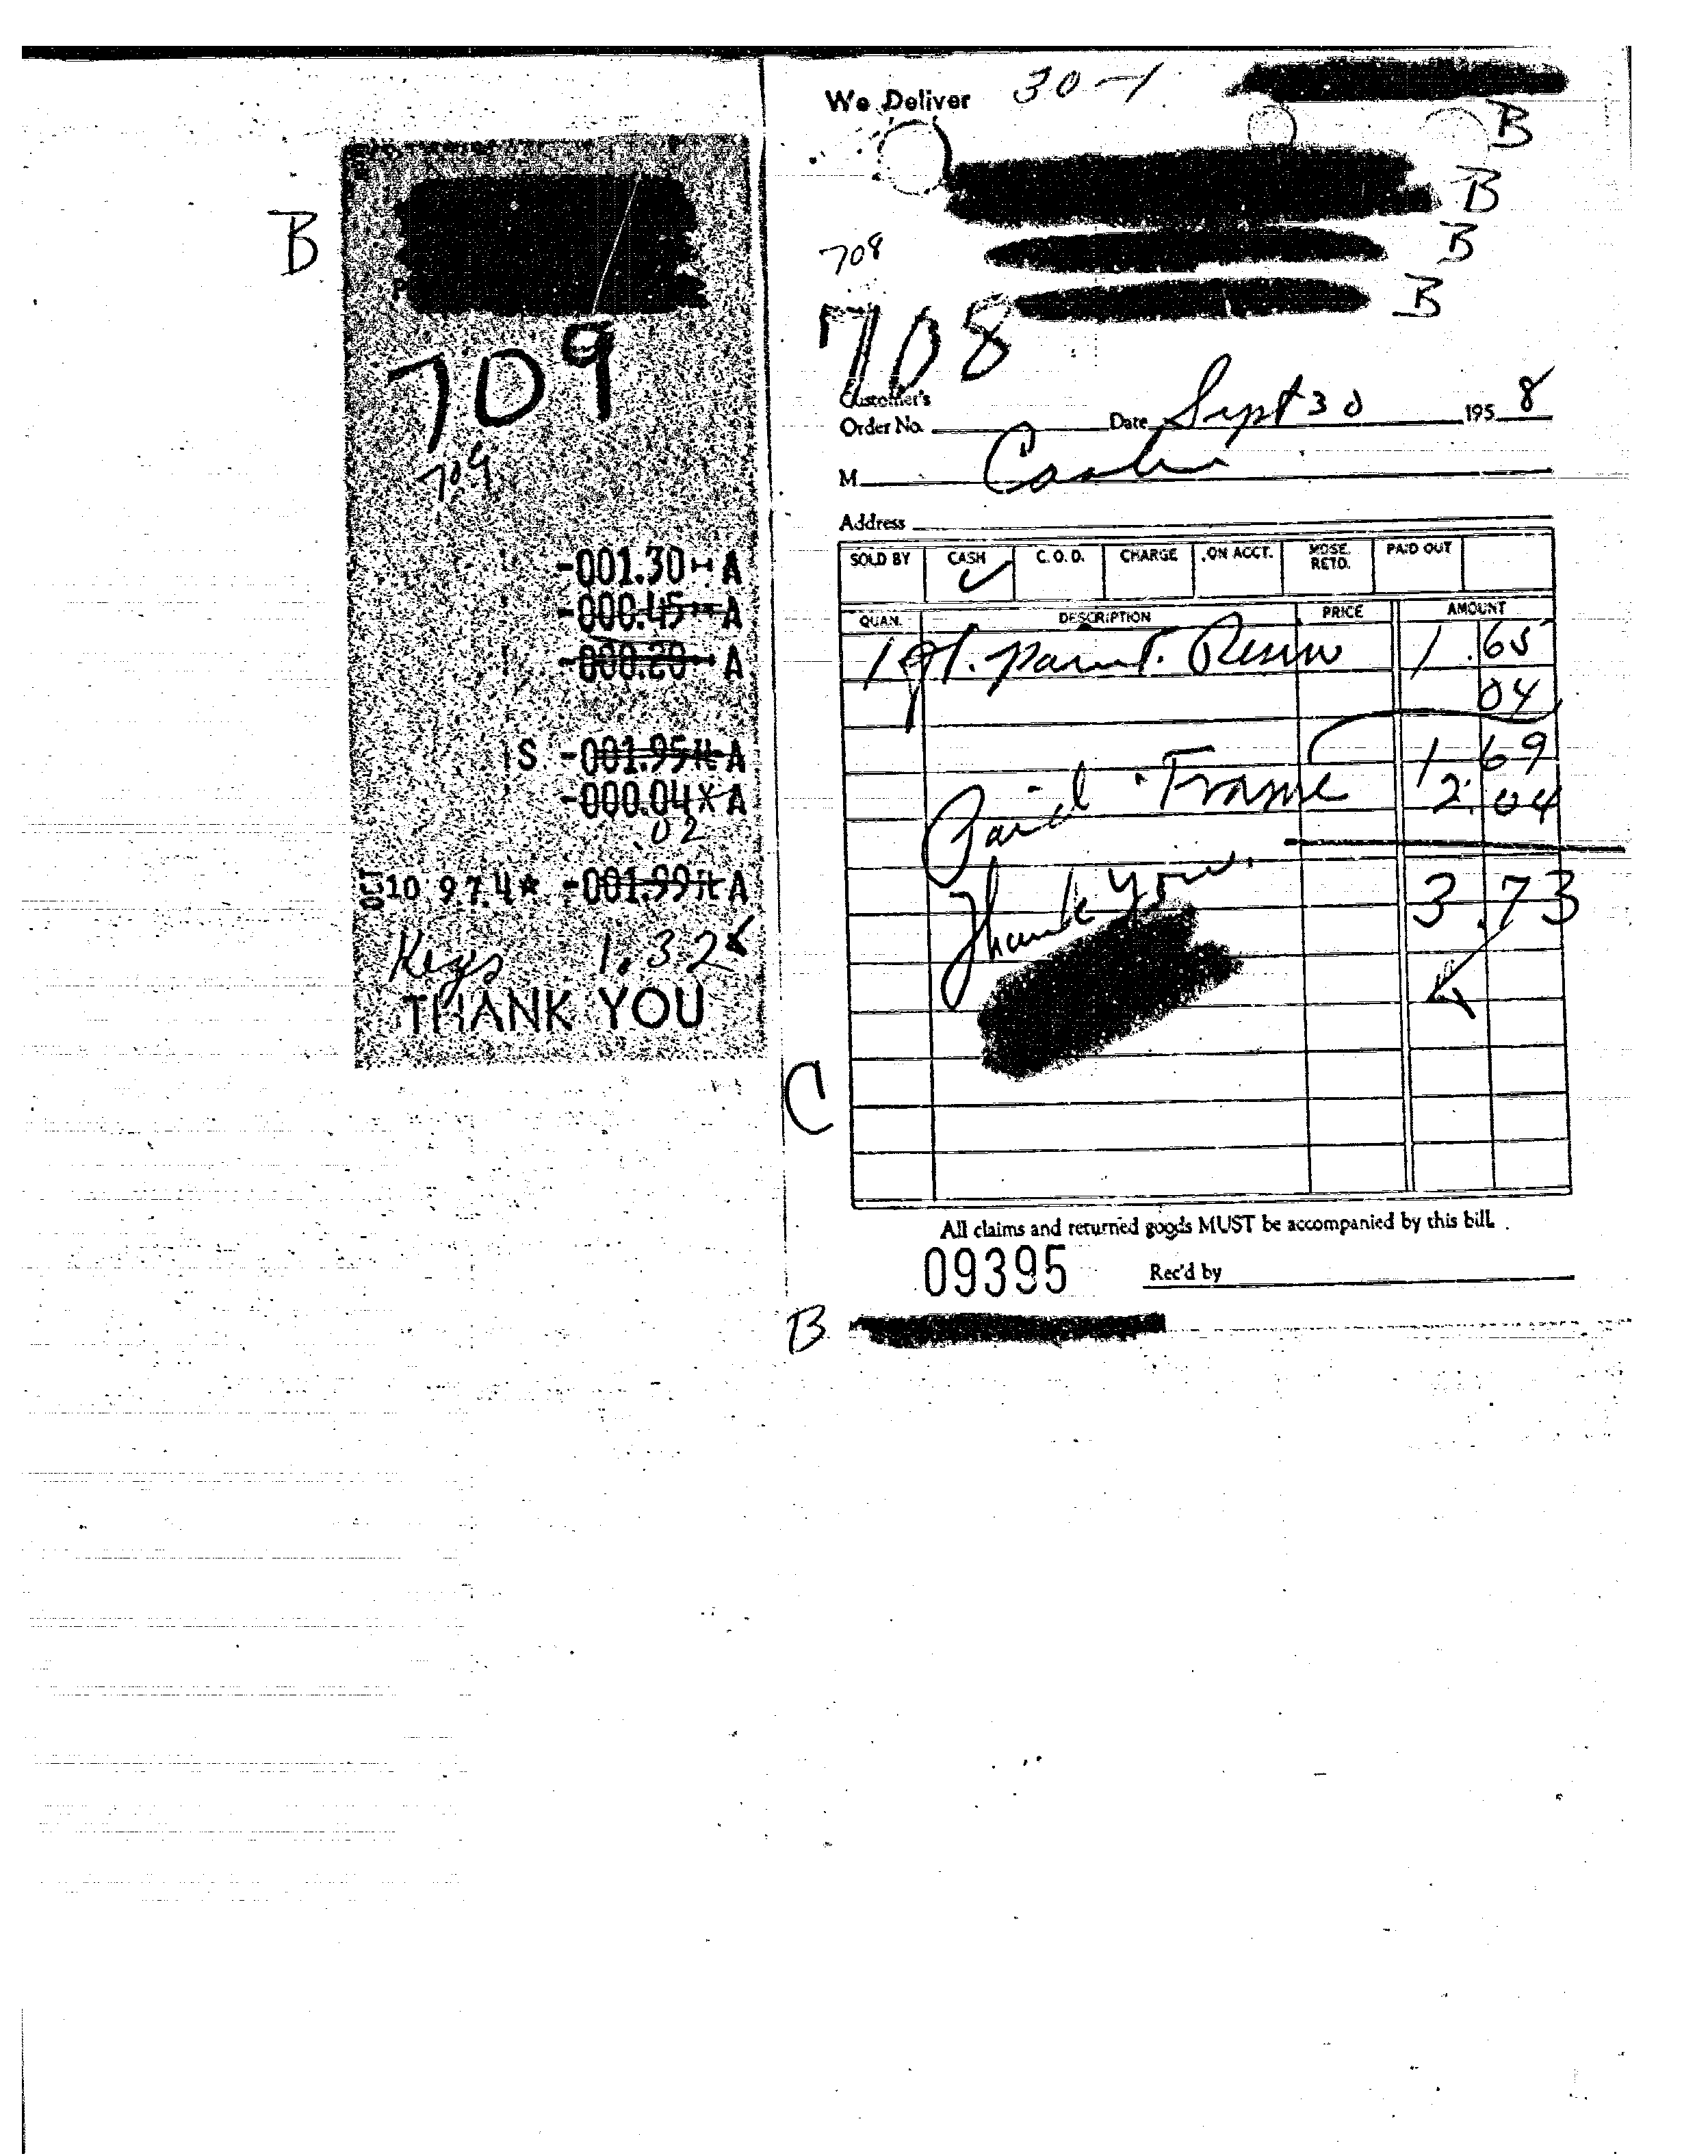 B
709
709
-001.30 A
-000.45 A
-000.20 A
S -001.95 A
-000.04 X A
.02
OCT 10 97.4* -001.99 A
Keys 1.32
THANK YOU
We Deliver 30-1
B
B
B
B
708
708
Customer's
Order No. Date Sept 30 195 8
M
Address
SOLD BY CASH C. O. D. CHARGE ON ACCT. MDSE. RETD. PAID OUT
✓
QUAN. DESCRIPTION PRICE AMOUNT
1 qt. 1.65
04
1 69
Paid Frame 2.04
Thank You. 3.73
C
All claims and returned goods MUST be accompanied by this bill.
09395 Rec'd by
B